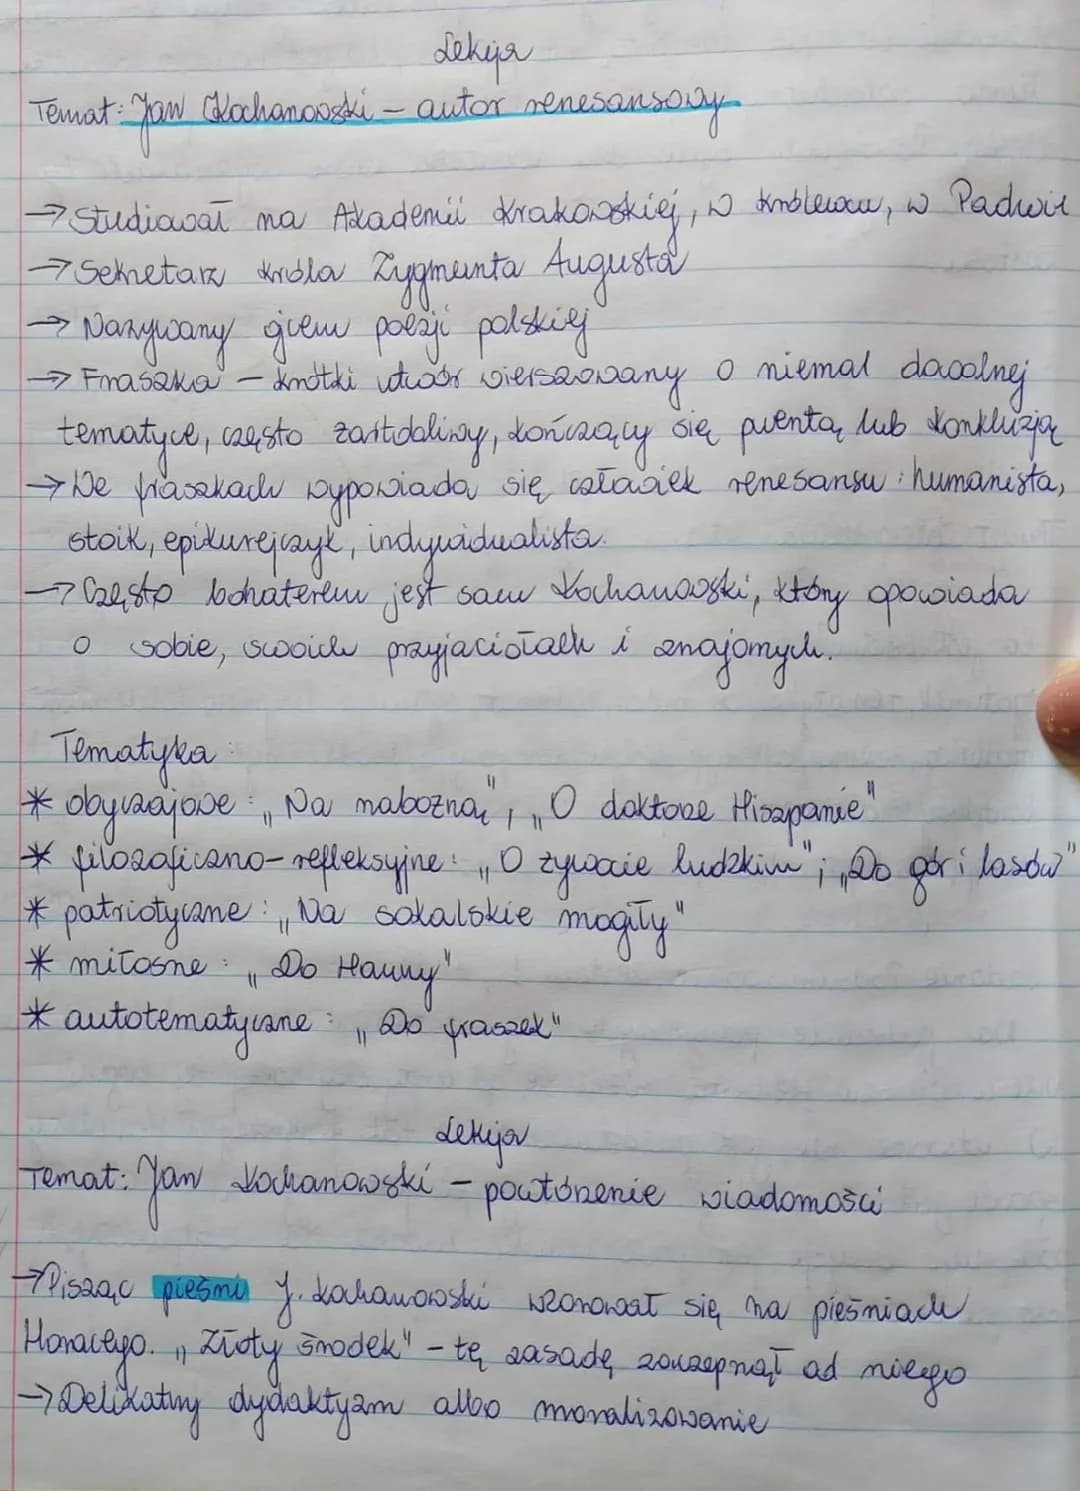 Lekcja
Temat: Jan Kochanowski – autor renesansowy
→ Studiował na Akademii Krakowskiej, w Królewcu, w Padwie
→ Sekretarz króla Zygmunta Augusta
→ Nazywany ojcem poezji polskiej
→ Fraszka – krótki utwór wierszowany o niemal dowolnej
tematyce, często żartobliwy, kończący się puentą lub konkluzją
→ We fraszkach wypowiada się człowiek renesansu: humanista,
stoik, epikurejczyk, indywidualista.
→ Często bohaterem jest sam Kochanowski, który opowiada
o sobie, swoich przyjaciołach i znajomych.
Tematyka:
* obyczajowe: „Na nabożną", „O doktorze Hiszpanie"
* filozoficzno-refleksyjne: „O żywocie ludzkim"; „Do gór i lasów"
* patriotyczne: „Na sokalskie mogiły"
* miłosne: „Do Hanny"
* autotematyczne: „Do fraszek"
Lekcja
Temat: Jan Kochanowski – powtórzenie wiadomości
→ Pisząc pieśni J. Kochanowski wzorował się na pieśniach
Horacego. „Złoty środek" – tę zasadę zaczerpnął od niego
→ Delikatny dydaktyzm albo moralizowanie